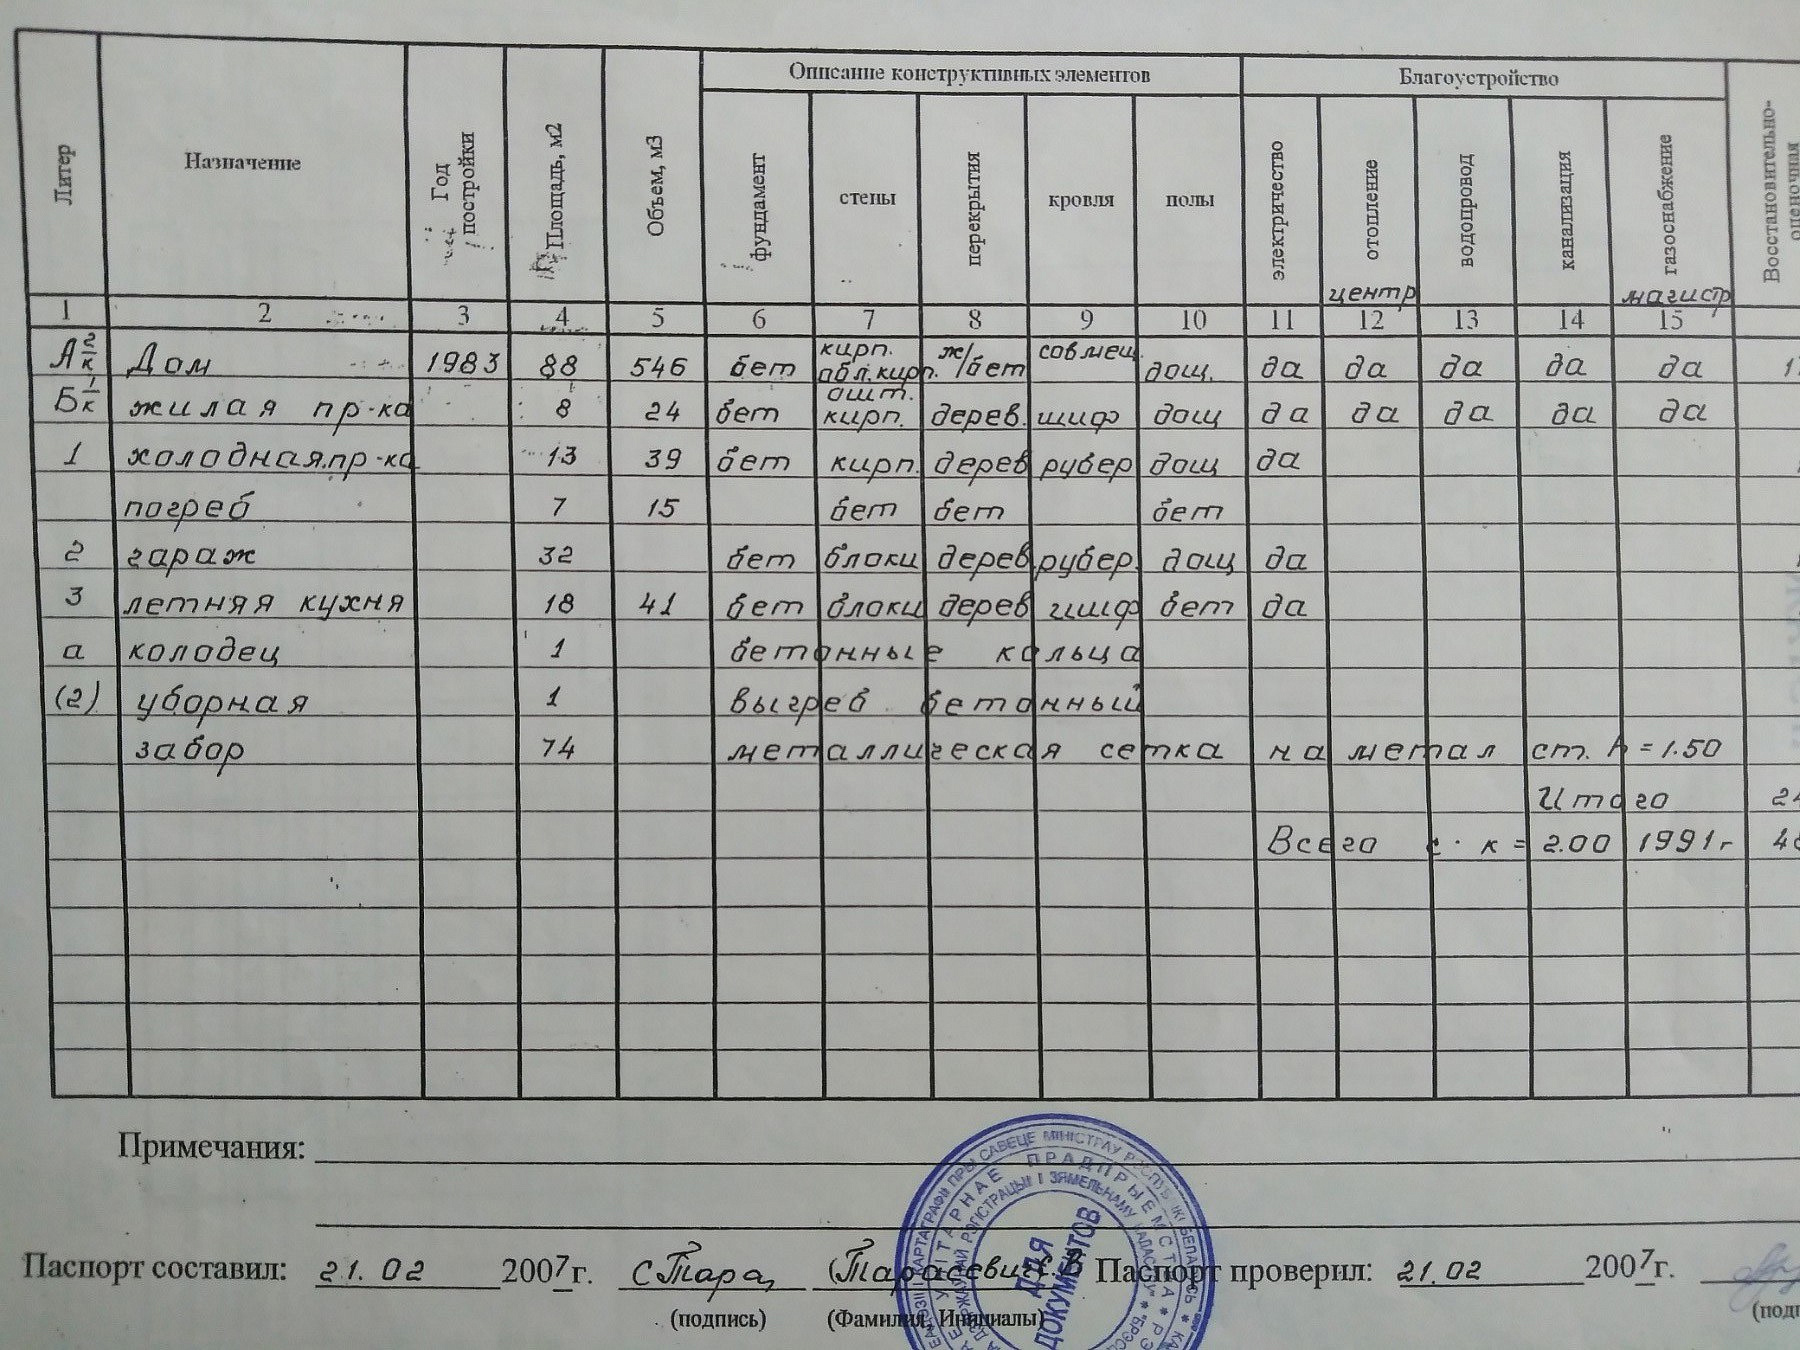 Описание конструктивных элементов Благоустройство
Литер Назначение Год постройки Площадь, м2 Объем, м3 фундамент стены перекрытия кровля полы электричество отопление водопровод канализация газоснабжение Восстановительно-оценочная
центр магистр
1 2 3 4 5 6 7 8 9 10 11 12 13 14 15
А 2/к Дом 1983 88 546 бет кирп. обл.кирп. ж/бет совмещ. дощ. да да да да да
Б 1/к жилая пр-ка 8 24 бет ошт. кирп. дерев. шиф дощ да да да да да
1 холодная пр-ка 13 39 бет кирп. дерев рубер дощ да
погреб 7 15 бет бет бет
2 гараж 32 бет блоки дерев рубер. дощ да
3 летняя кухня 18 41 бет блоки дерев шиф бет да
а колодец 1 бетонные кольца
(2) уборная 1 выгреб бетонный
забор 74 металлическая сетка на метал ст. h = 1.50
Итого
Всего с к = 2.00 1991г
Примечания:
Паспорт составил: 21.02 2007г. (Тарасевич С.В Паспорт проверил: 21.02 2007г.
(подпись) (Фамилия, Инициалы)
ДЛЯ
ДОКУМЕНТОВ
КАРТАГРАФІІ ПРЫ САВЕЦЕ МІНІСТРАЎ РЭСПУБЛІКІ БЕЛАРУСЬ
УНІТАРНАЕ ПРАДПРЫЕМСТВА
ДЗЯРЖАЎНАЙ РЭГІСТРАЦЫІ І ЗЯМЕЛЬНАМУ КАДАСТРУ